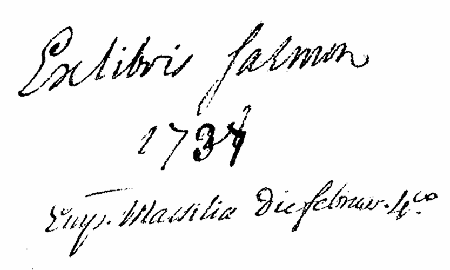 Ex libris Salmon
1738
Emp. Massiliæ Die februar. 4.to